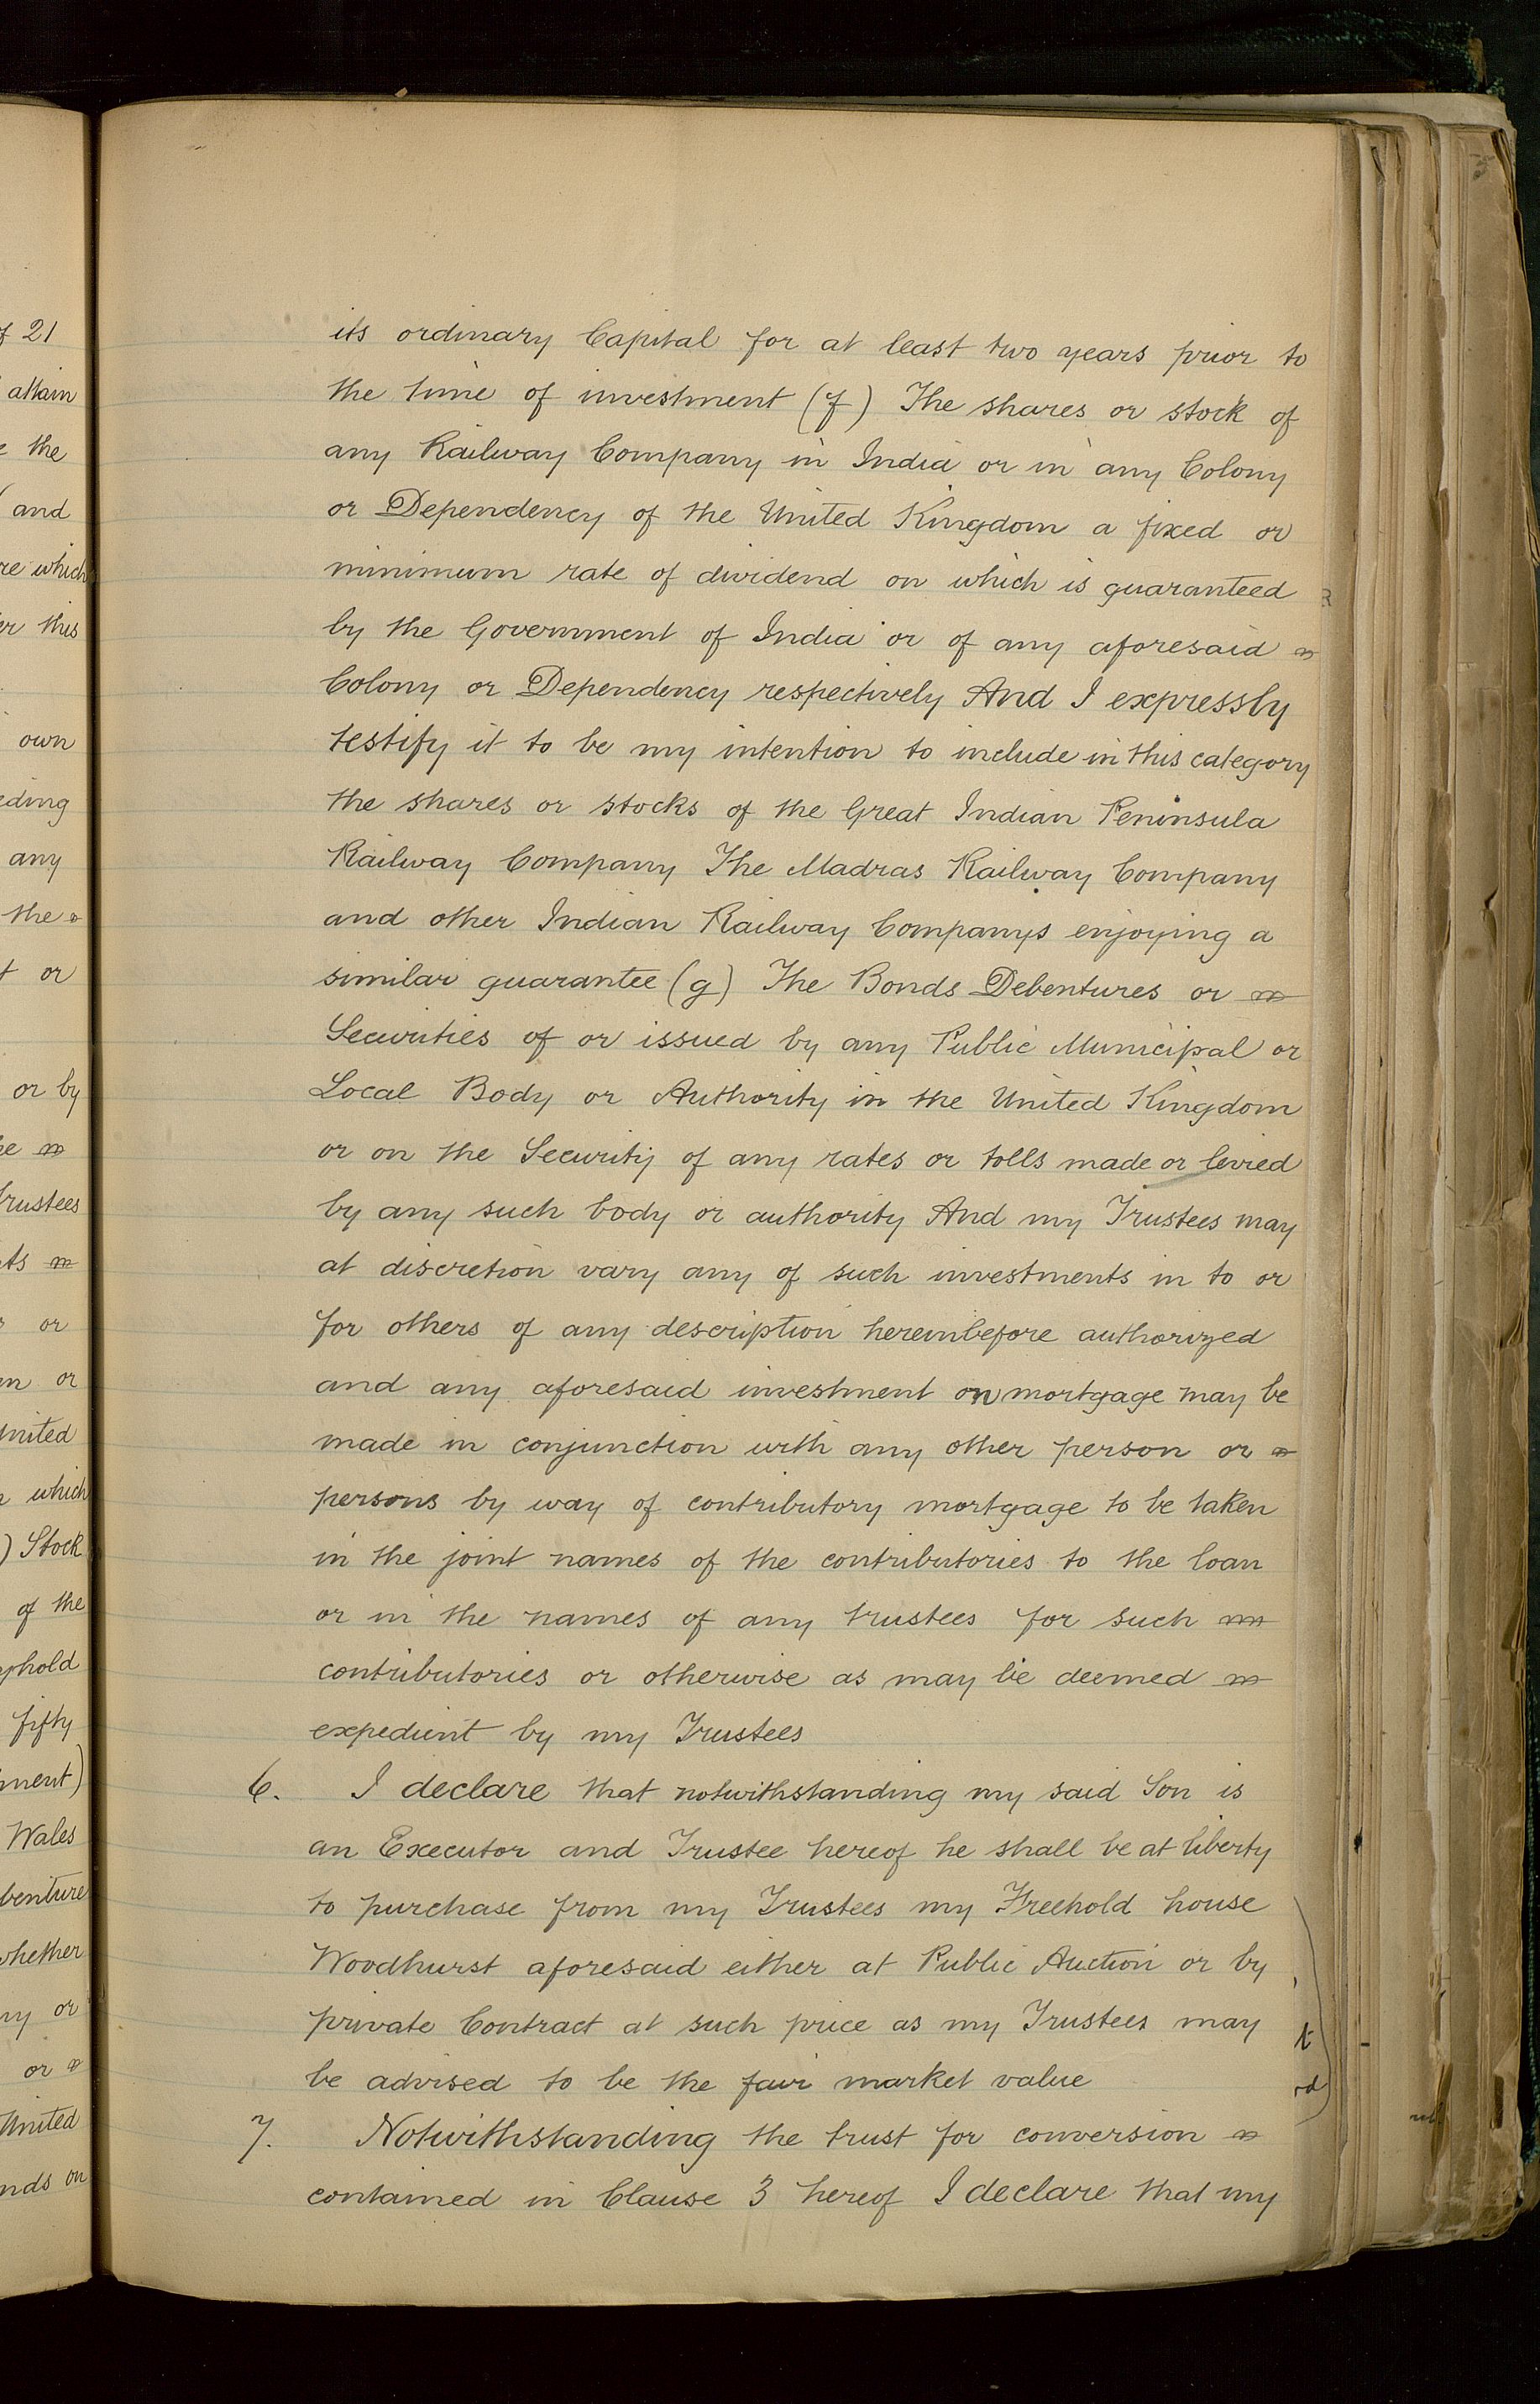 its ordinary Capital for at least two years prior to
the time of investment (f) The shares or stock of
any Railway Company in India or in any Colony
or Dependency of the United Kingdom a fixed or
minimum rate of dividend on which is guaranteed
by the Government of India or of any aforesaid
Colony or Dependency respectively And I expressly
testify it to be my intention to include in this category
the shares or stocks of the Great Indian Peninsula
Railway Company The Madras Railway Company
and other Indian Railway Companys enjoying a
similar guarantee (g) The Bonds Debentures or
Securities of or issued by any Public Municipal or
Local Body or Authority in the United Kingdom
or on the Security of any rates or tolls made or levied
by any such body or authority And my Trustees may
at discretion vary any of such investments in to or
for others of any description hereinbefore authorized
and any aforesaid investment on mortgage may be
made in conjunction with any other person or
persons by way of contributory mortgage to be taken
in the joint names of the contributories to the loan
or in the names of any trustees for such
contributories or otherwise as may be deemed
expedient by my Trustees
6. I declare that notwithstanding my said Son is
an Executor and Trustee hereof he shall be at liberty
to purchase from my Trustees my Freehold house
Woodhurst aforesaid either at Public Auction or by
private Contract at such price as my Trustees may
be advised to be the fair market value
7. Notwithstanding the trust for conversion
contained in Clause 3 hereof I declare that my
21
attain
the
and
which
this
own
any
the
or
or by
Trustees
or
or
United
which
Stock
of the
fifty
Wales
whether
or
or
United
on